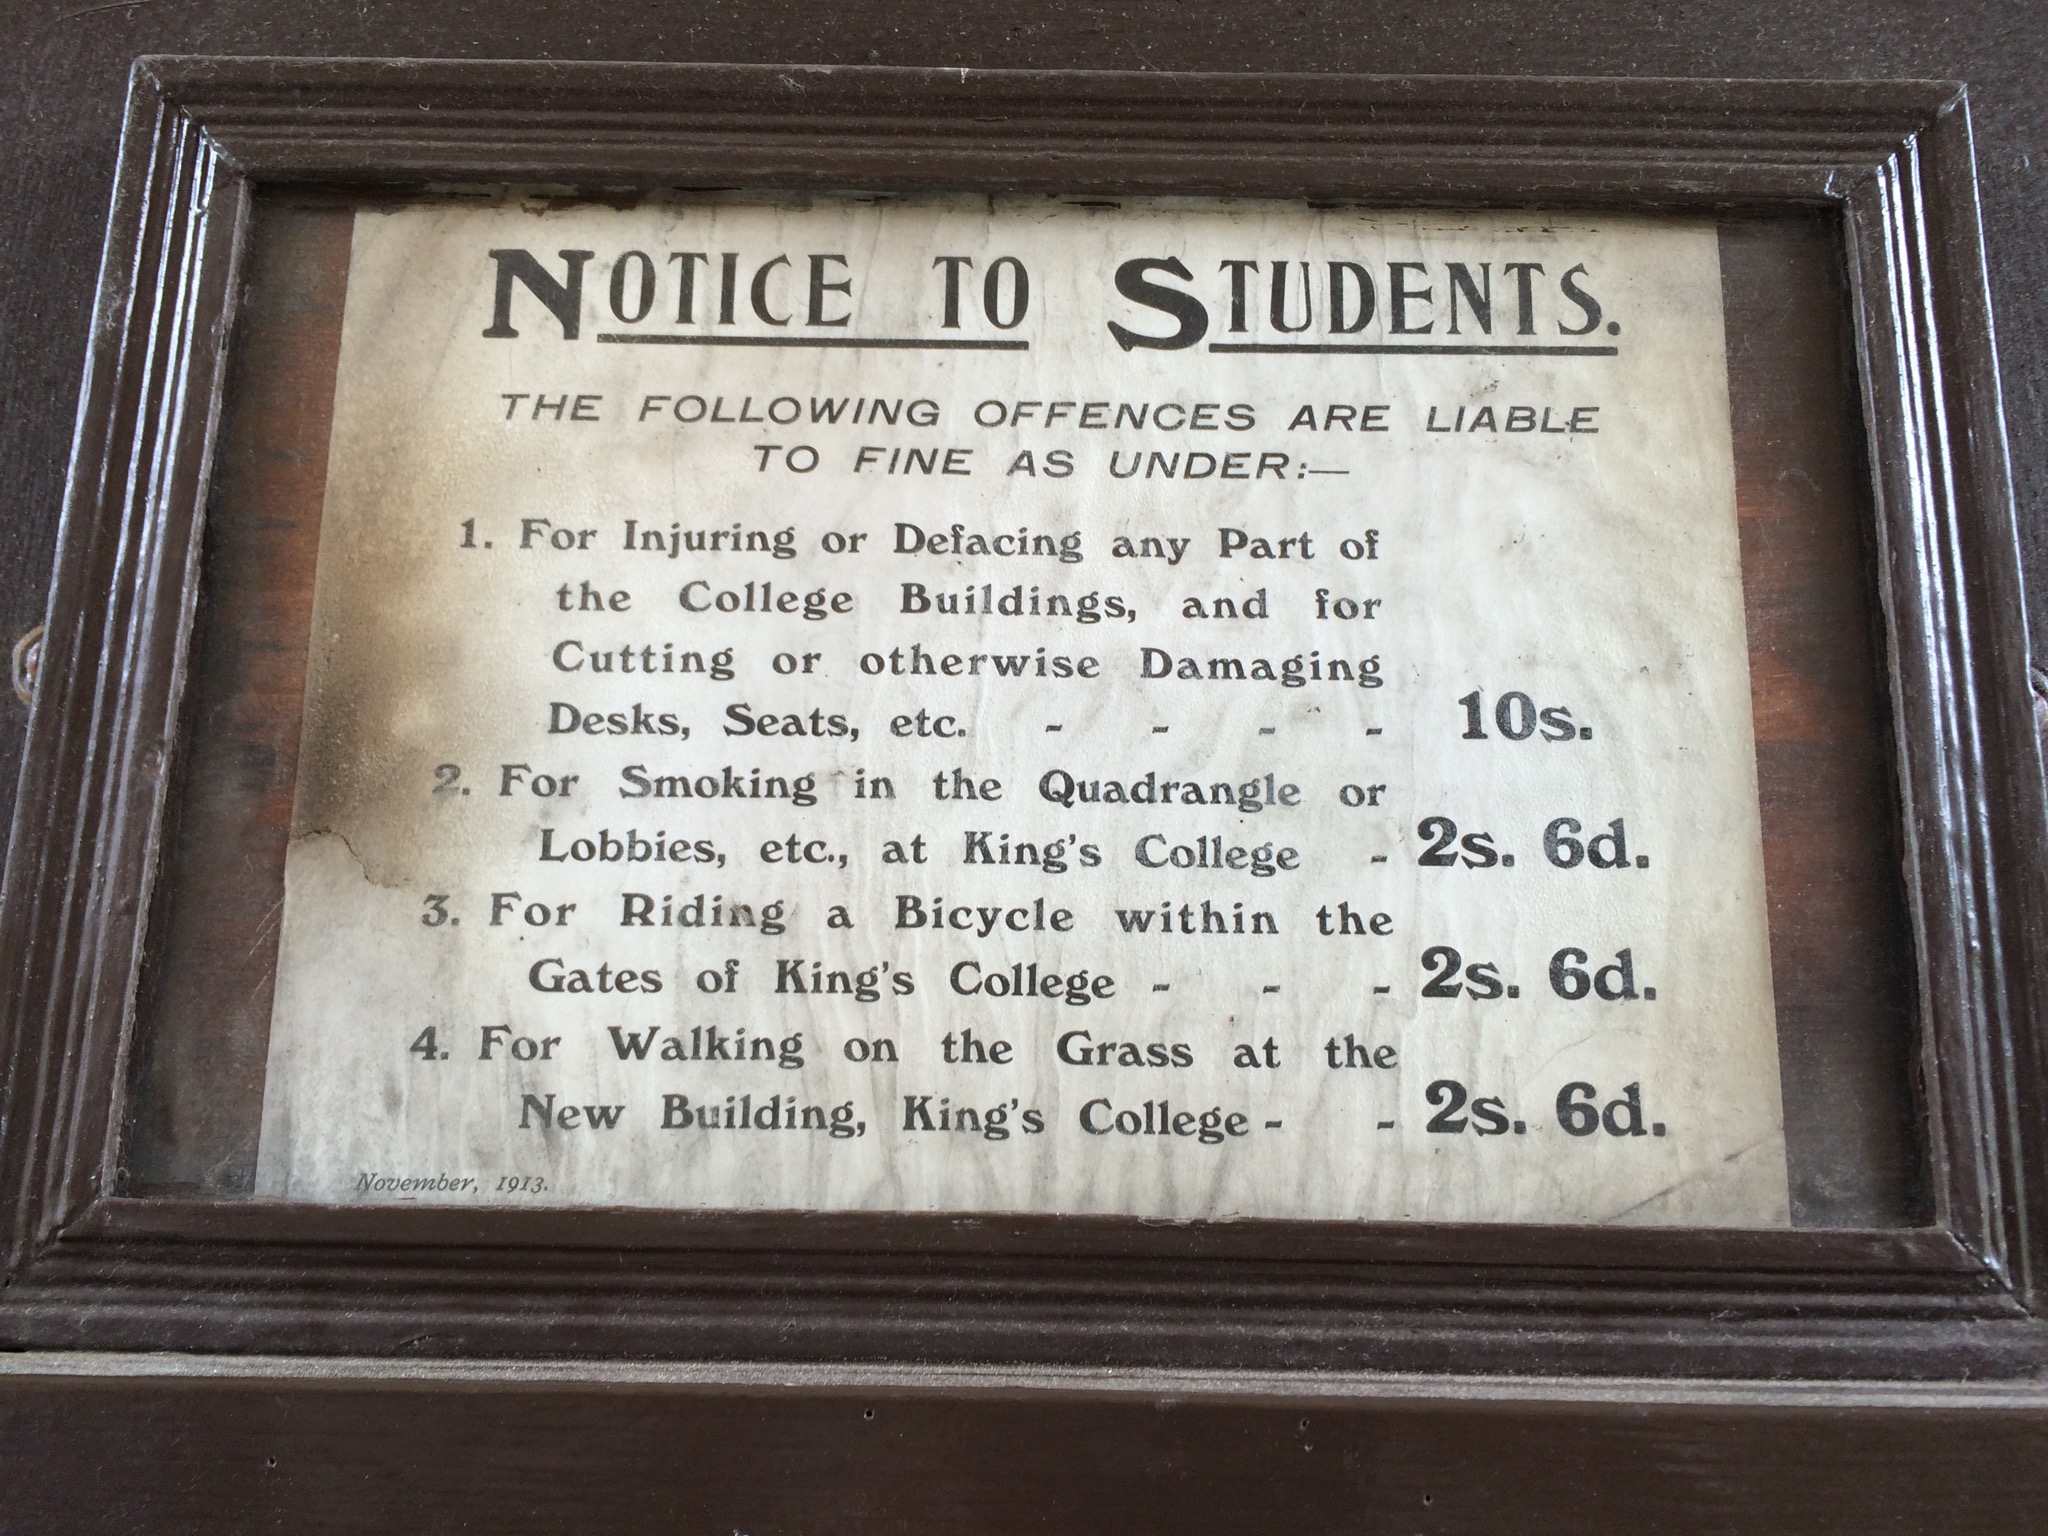 NOTICE TO STUDENTS.
THE FOLLOWING OFFENCES ARE LIABLE
TO FINE AS UNDER:—
1. For Injuring or Defacing any Part of
the College Buildings, and for
Cutting or otherwise Damaging
Desks, Seats, etc. - - - - 10s.
2. For Smoking in the Quadrangle or
Lobbies, etc., at King's College - 2s. 6d.
3. For Riding a Bicycle within the
Gates of King's College - - - 2s. 6d.
4. For Walking on the Grass at the
New Building, King's College - - 2s. 6d.
November, 1913.